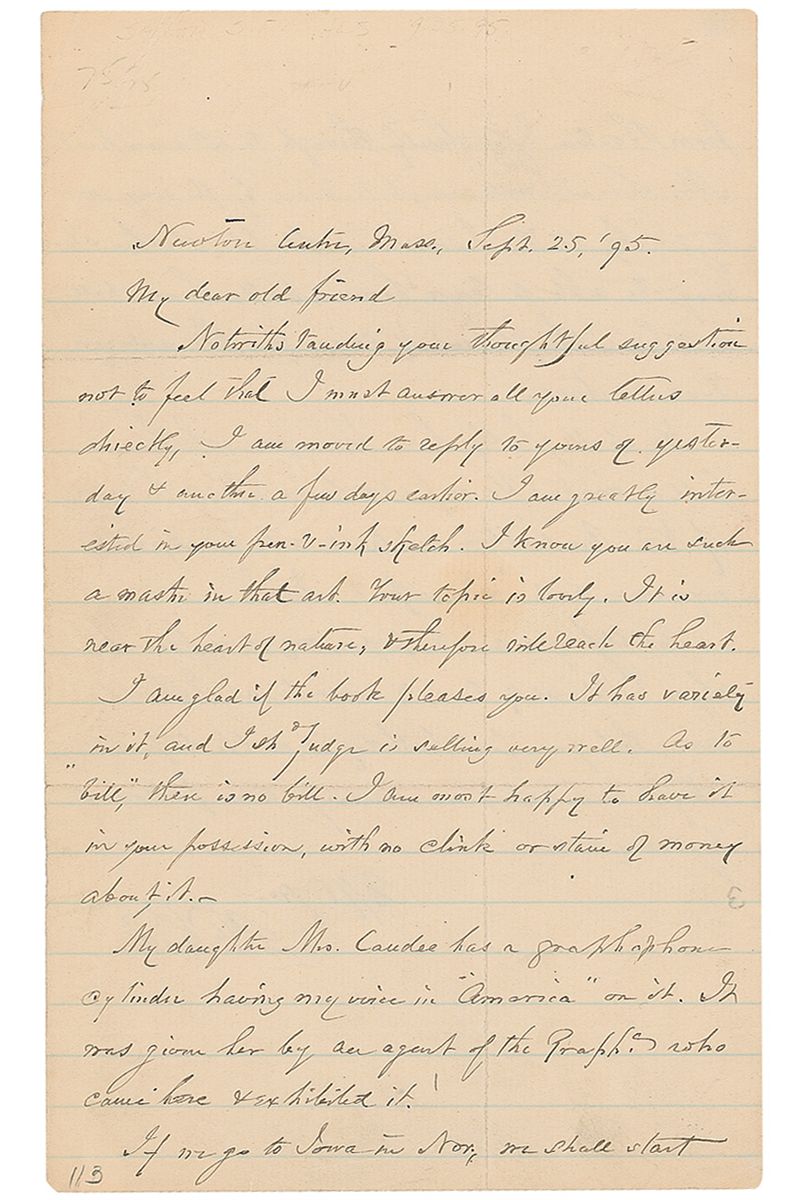 Newton Centre, Mass., Sept. 25, '95.
My dear old friend
Notwithstanding your thoughtful suggestion
not to feel that I must answer all your letters
directly, I am moved to reply to yours of yester-
day & another a few days earlier. I am greatly inter-
ested in your pen-&-ink sketch. I know you are such
a master in that art. Your topic is lovely. It is
near the heart of nature, & therefore will reach the heart.
I am glad if the book pleases you. It has variety
in it, and I sh'd judge is selling very well. As to
"bill," there is no bill. I am most happy to have it
in your possession, with no clink or stain of money
about it.—
My daughter Mrs. Candee has a graphaphone
cylinder having my voice in "America" on it. It
was given her by an agent of the Graph. who
came here & exhibited it!
If we go to Iowa in Nov., we shall start
113